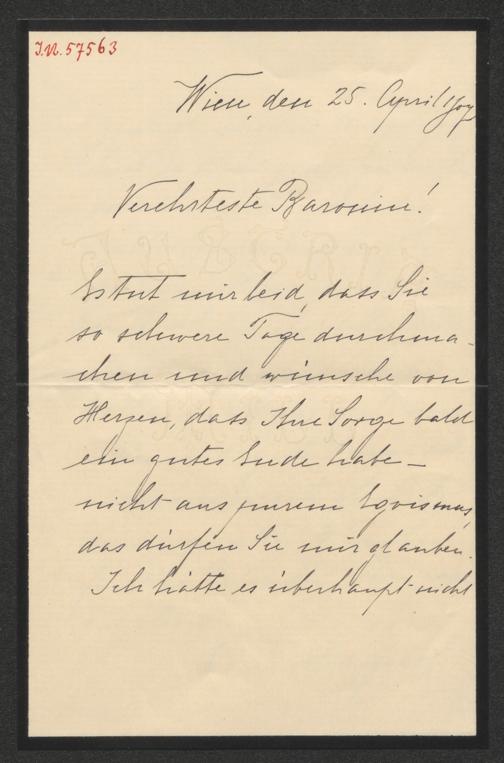 I.N. 57563
Wien, den 25. April 1907
Verehrteste Baronin!
Es tut mir leid, dass Sie
so schwere Tage durchma-
chen und wünsche von
Herzen, dass Ihre Sorge bald
ein gutes Ende habe –
nicht aus purem Egoismus,
das dürfen Sie mir glauben.
Ich hätte es überhaupt nicht